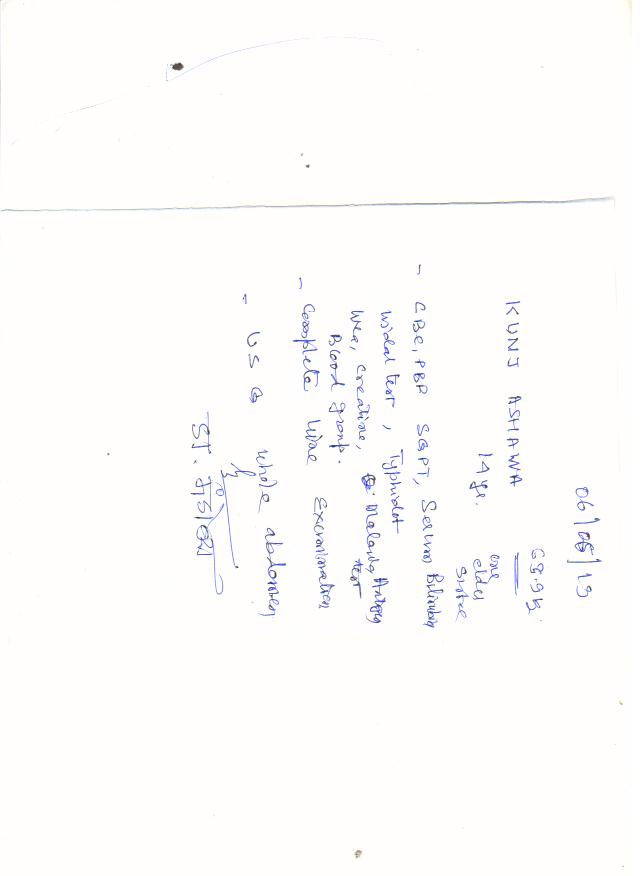 06/06/19
KUNJ ASHAWA 68.9 kg.
14 yr. one elder sister
- CBC, PBP SGPT, Serum Bilirubin
widal test, Typhidot
Urea, Creatine, Malaria Antigen test
Blood group.
- Complete Urine Examination
- USG whole abdomen